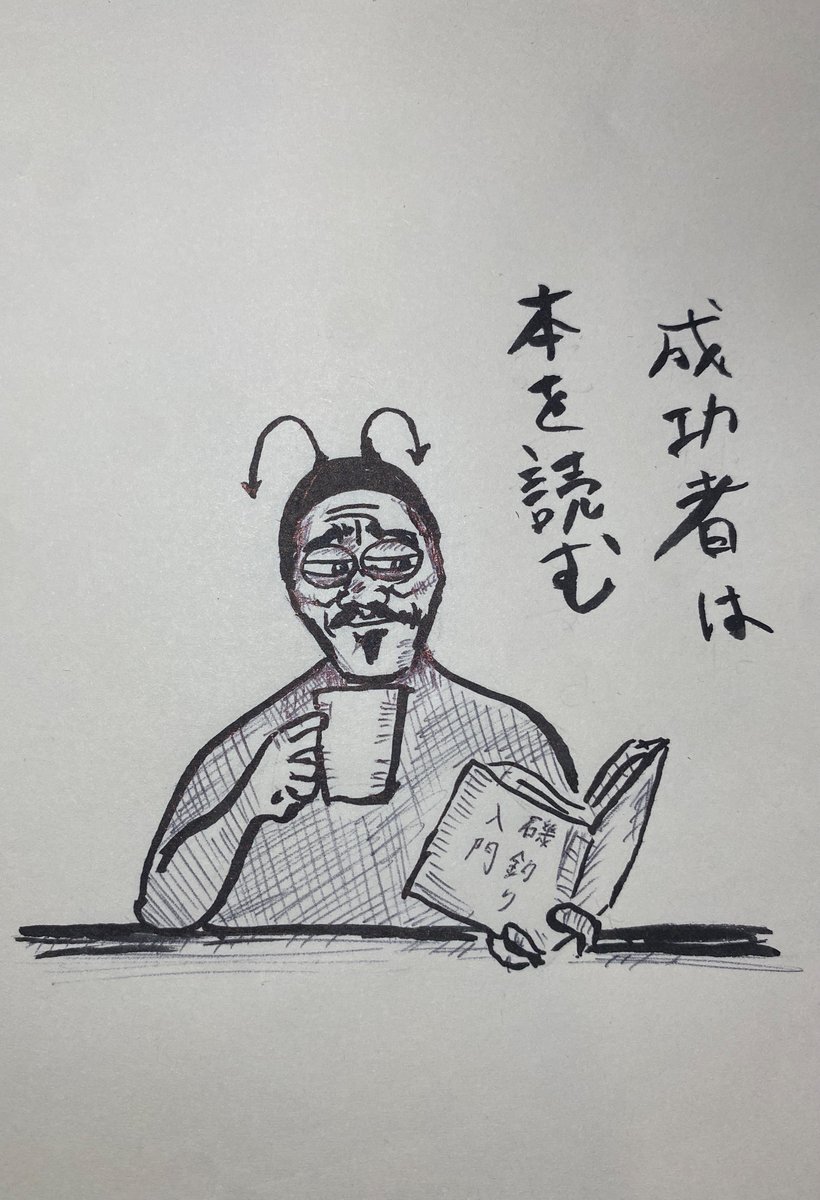 成功者は
本を読む
磯釣り
入門